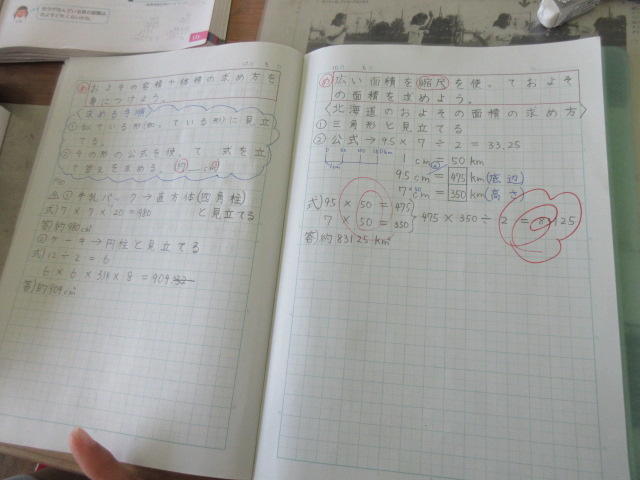 め およその容積や体積の求め方を
身につけよう。
求める手順
①似ている形に見立
てる。
②その形の公式を使って式を立
て答えを求める
①牛乳パック→直方体(四角柱)
と見立てる
式)7×7×20=980
答)約980cm³
②ケーキ→円柱と見立てる
式)12÷2=6
6×6×3.14×8=904
答)約904cm³
め 広い面積を縮尺を使っておよそ
の面積を求めよう。
〈北海道のおよその面積の求め方〉
①三角形と見立てる
②公式→9.5×7÷2=33.25
1cm=50km
9.5cm=475km(底辺)
7cm=350km(高さ)
式)9.5×50=475
7×50=350
475×350÷2=83125
答)約83125km²